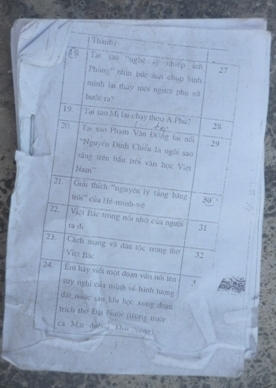 Thành)
18. Tại sao "nghệ sĩ nhiếp ảnh
Phùng" nhìn bức ảnh chụp
mình lại thấy một người phụ nữ
bước ra? 27
19. Tại sao Mị lại chạy theo A Phủ? 28
20. Tại sao Phạm Văn Đồng lại nói 29
"Nguyễn Đình Chiểu là ngôi sao
sáng trên bầu trời văn học Việt
Nam"
21. Giải thích "nguyên lý tảng băng 30
trôi" của Hê-minh-uê
22. Việt Bắc trong nỗi nhớ của người 31
ra đi
23. Cách mạng và dân tộc trong thơ 32
Việt Bắc
24. Em hãy viết một đoạn văn nói lên
suy nghĩ của mình về hình tượng
đất nước sau khi học xong đoạn
trích thơ Đất Nước (trường
ca Mặt đường khát vọng)